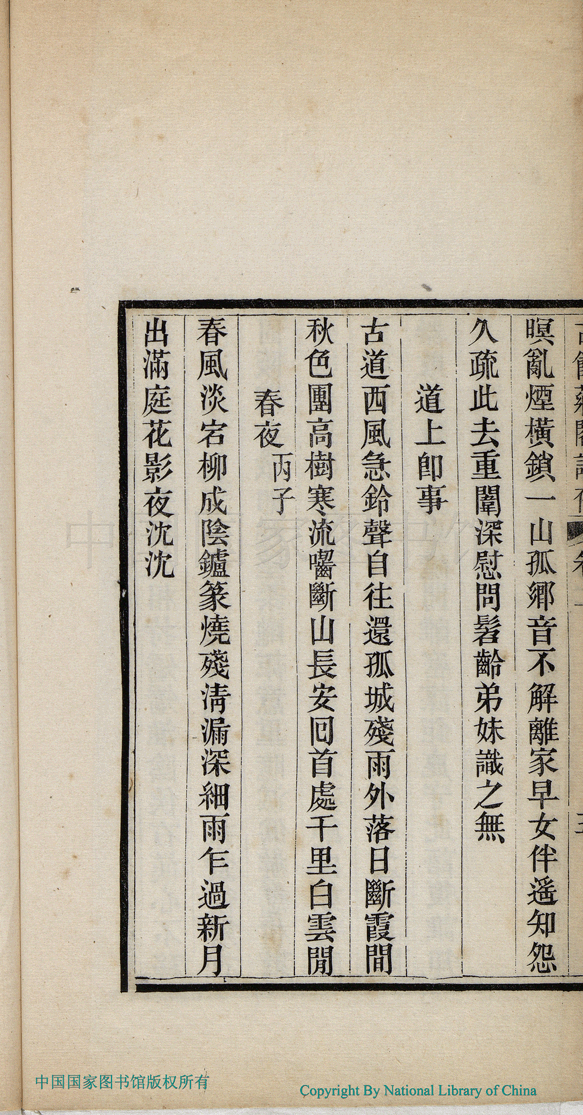 暝亂煙橫鎖一山孤鄉音不解離家早女伴遙知怨
久疏此去重闈深慰問髫齡弟妹識之無
道上卽事
古道西風急鈴聲自往還孤城殘雨外落日斷霞間
秋色團高樹寒流嚙斷山長安回首處千里白雲閒
春夜 丙子
春風淡宕柳成陰鑪篆燒殘淸漏深細雨乍過新月
出滿庭花影夜沈沈
中国国家图书馆版权所有
Copyright By National Library of China